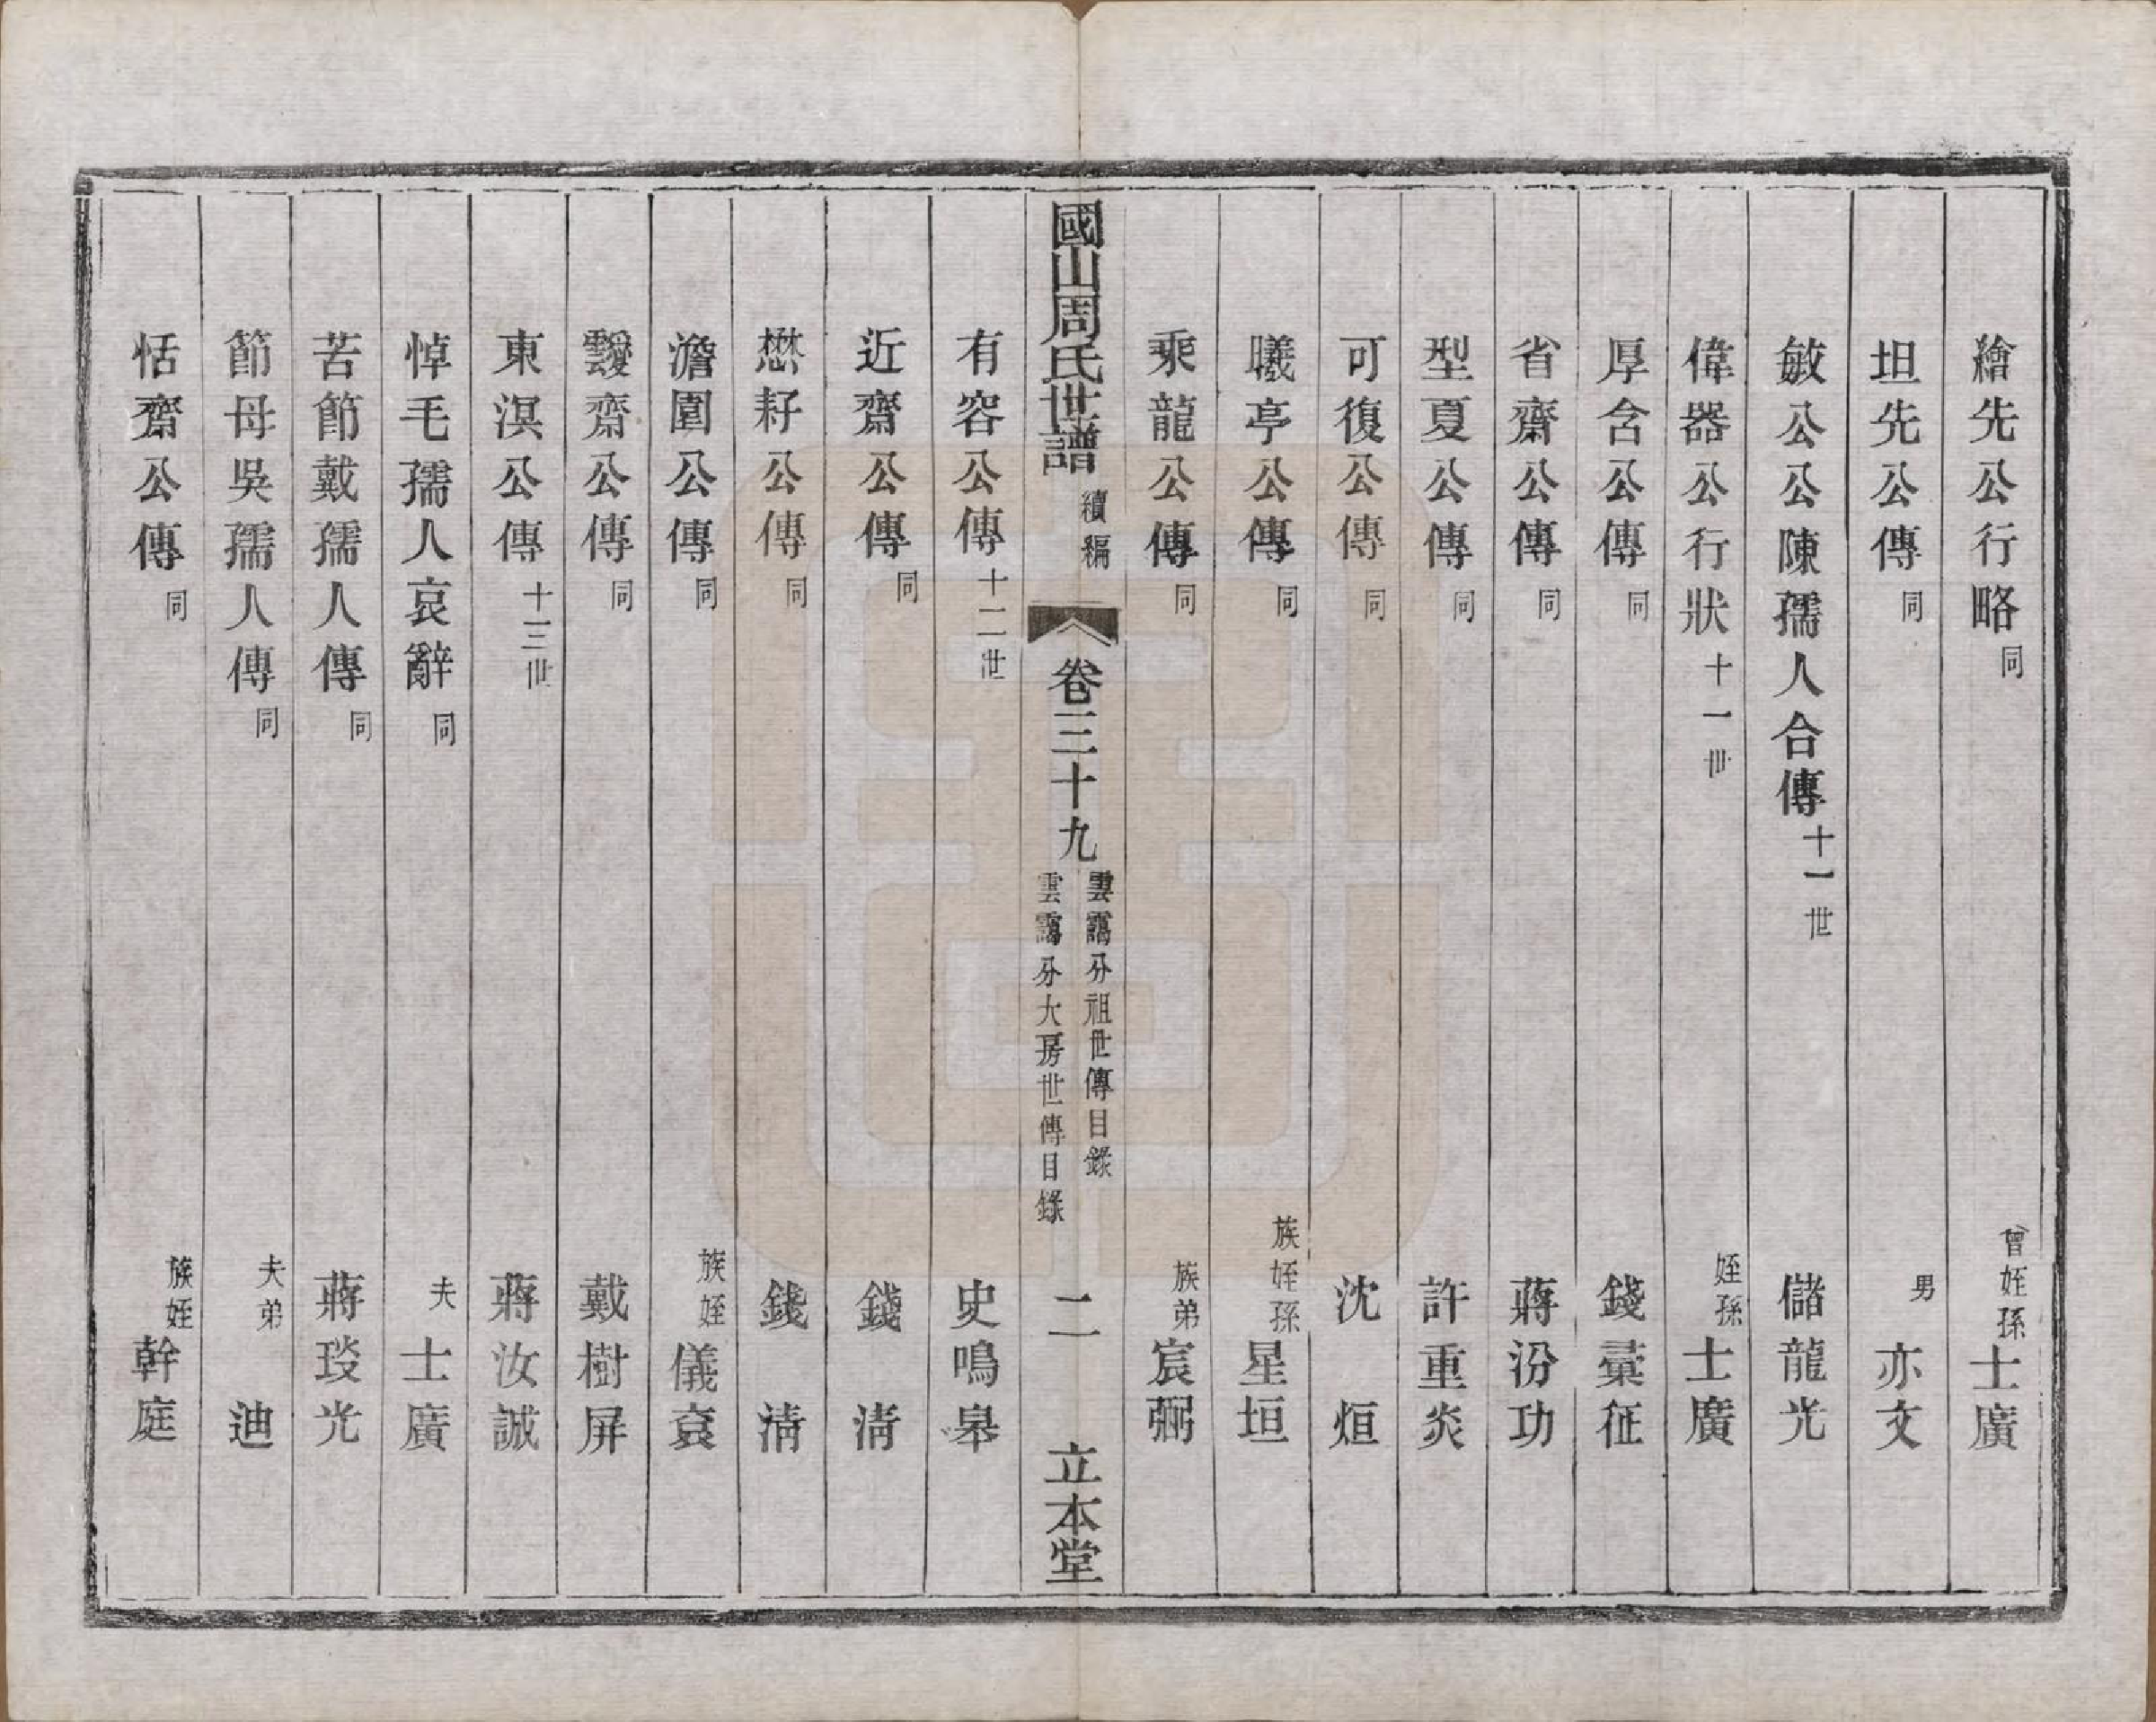 繪先公行略同 曾姪孫士廣
坦先公傳同 男亦文
敏公公陳孺人合傳十一世 儲龍光
偉器公行狀十一世 姪孫士廣
厚含公傳同 錢彙征
省齋公傳同 蔣汾功
型夏公傳同 許重炎
可復公傳同 沈烜
曦亭公傳同 族姪孫星垣
乘龍公傳同 族弟宸弼
國山周氏世譜 續編 卷三十九 雲靄分祖世傳目錄 雲靄分大房世傳目錄 二 立本堂
有容公傳十二世 史鳴皋
近齋公傳同 錢清
懋耔公傳同 錢清
澹園公傳同 族姪儀袞
靉齋公傳同 戴樹屏
東溟公傳十三世 蔣汝誠
悼毛孺人哀辭同 夫士廣
苦節戴孺人傳同 蔣琰光
節母吳孺人傳同 夫弟迪
恬齋公傳同 族姪幹庭